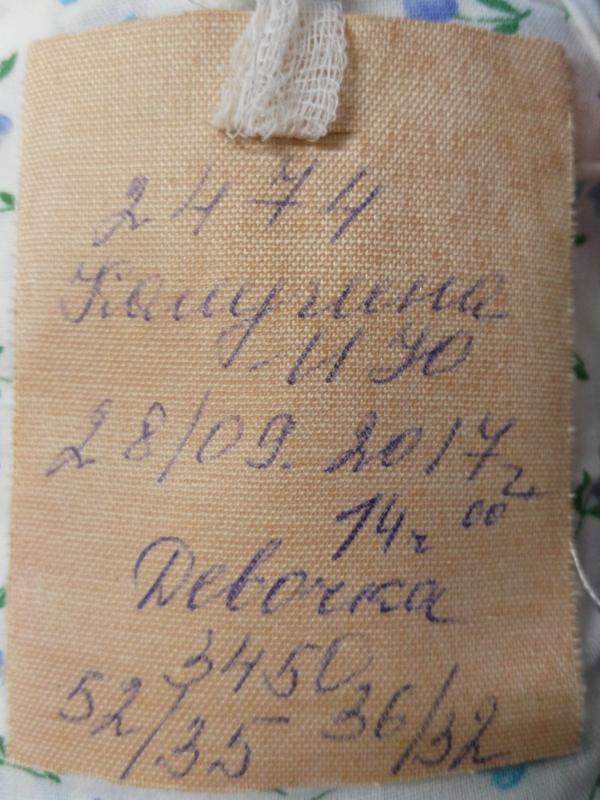 2474
И Ю
28/09. 2017г
14ч 00
Девочка
3450
52/35 36/32